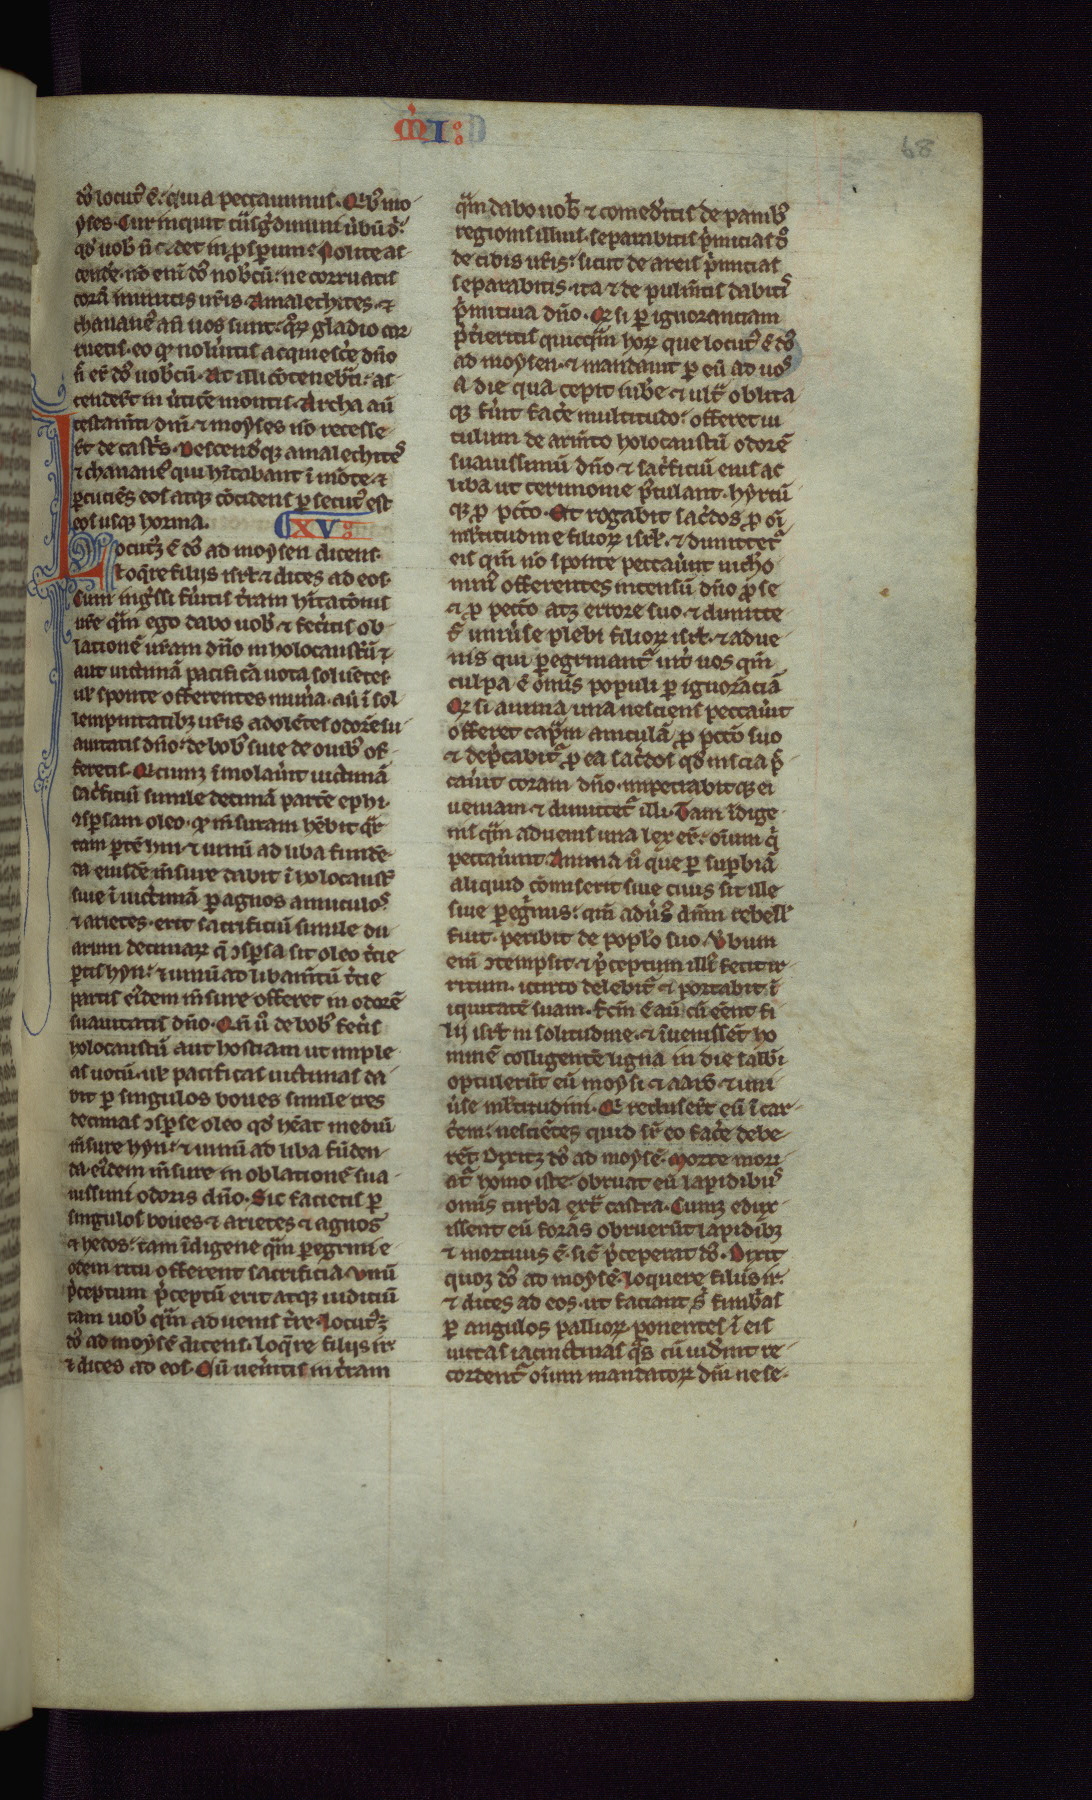 M̄I:
68
dꝰ locutꝰ ē. quia peccauimus. Qⁱbꝰ mo
yses. Cur inquit tⁿsg̾dimini u̾bū dⁱ.
qđ uob̾ n̄ cedet in ꝓsperum. Nolite as
cende̾. nō enī dn̄s nob̾cū. ne corruatis
corā inimicis ur̄is. Amalechites ⁊
chananeꝰ an̄ uos sunt. quoꝝ gladio cor
ruetis. eo ꝙ nolu̾itis acquiesc̾e dn̄o
n̄ er̾ dn̄s uob̾cū. At illi ꝯtenebr̾ti as
cender̄t in u̾ticē montis. Archa aū
testam̄ti dn̄i ⁊ moyses nō recesse
r̄t de cast̾s. Descendꝯ̄ amalechitesꝰ
⁊ chananeꝰ qui hītabant ī mōte ⁊
ꝑcutiēs eos atqꝫ cōcidens ꝑsecutꝰ est
eos usqꝫ horma. XV
Locutꝫ ē dn̄s ad moysen dicens
loq̄re filiis isr̄l ⁊ dices ad eos.
Cum ing̾ssi fu̾itis t̾ram hītatōnis
ur̄e qͣm ego dabo uob̾ ⁊ fec̾itis ob
lationē ur̄am dn̄o in holocaustū
aut uictimā pacificā uota soluētes
ul̾ sponte offerentes mun̾a. aū ī sol
lempnitatibꝫ ur̄is adolētes odorē su
auitatis dn̄o. de bobꝰ siue de ouibꝰ of
feretis. Qⁱcumqꝫ īmolau̾it uictimā
sac̾ficiū simile decimā partē ephi
ꝯsꝑsam oleo. ꝙ m̄suram hēbit qͣr
tam ꝑtē hin ⁊ uinū ad liba fundē
da eiusdē m̄sure dabit ī holocaustꝰ
siue ī uictimā ꝑ agnos anniculoꝰ
⁊ arietes. erit sacrificiū simile du
arum decimarꝝ q̄ ꝯsꝑsa sit oleo t̾cie
ꝑtis hyn. ⁊ uinū ad libam̄tū t̾cie
partis ei̾dem m̄sure offeret in odorē
suauitatis dn̄o. Qn̄ u̾ de bobꝰ fec̾is
holocaustū aut hostiam ut imple
as uotū. ul̾ pacificas uictimas da
bit ꝑ singulos boues simile tres
decimas ꝯsꝑse oleo qđ hēat mediū
m̄sure hyn. ⁊ uinū ad liba fūden
da ei̾dem m̄sure in oblationē sua
uissimi odoris dn̄o. Sic facietis ꝑ
singulos boues ⁊ arietes ⁊ agnos
⁊ hedos. tam īdigene qͣm ꝑegrini e
odem ritu offerent sacrificia. Vnū
p̄ceptum p̄ceptū erit atqꝫ iudiciū
tam uob̾ qͣm aduenis t̾re. Locutꝰꝫ
dꝰ ad moysē dicens. loq̄re filiis isr̄
⁊ dices ad eos. Cū uen̾itis in t̾ram
qͣm dabo uob̾ ⁊ comed̾itis de panibꝰ
regionis illius. separabitis p̾micias dn̄o
de cibis ur̄is. sicut de areis p̾micias
separabitis. ita ⁊ de pulm̄tis dabitⁱ
p̾mitiua dn̄o. Qđ si ꝑ ignoranciam
p̄t̾ieritis quicqͣm hoꝝ que locutꝰ ē dn̄s
ad moysen. ⁊ mandauit ꝑ eū ad uoꝰ
a die qua cepit iub̾e ⁊ ult̾ oblita
qꝫ fu̾it fac̾e multitudo. offeret ui
tulum de arm̄to holocaustū odorē
suauissimū dn̄o ⁊ sac̾ficiū eius ac
liba ut cerimonie pͦstulant. hyrcū
qꝫ ꝓ pc̄cō. Et rogabit sac̾dos ꝓ oī
ml̾titudine filioꝝ isr̄l. ⁊ dimittetᷣ
eis qm̄ nō sponte peccau̾unt nichoͦ
minꝰ offerentes incensū dn̄o ꝓ se
⁊ ꝓ peccō atqꝫ errore suo. ⁊ dimitte
tᷣ uniu̾se plebi filioꝝ isr̄l. ⁊ adue
nis qui ꝑegrinantᷣ int̾ uos qm̄
culpa ē om̄is populi ꝑ ignorāciā
Qđ si anima una nesciens peccau̾it
offeret capͣm anniculā ꝓ pc̄cō suo
⁊ dep̄cabitᷣ ꝓ ea sac̾dos qđ inscia pec
cau̾it coram dn̄o. impetrabitqꝫ ei
ueniam ⁊ dimittetᷣ illi. Tam īdige
nis qͣm aduenis una lex er̾. oīum qⁱ
peccau̾unt. Anima u̾ que ꝑ supbiā
aliquid cōmiserit siue ciuis sit ille
siue ꝑeg̾nus. qm̄ adu̾s dn̄m rebellꝭ
fuit. peribit de popl̾o suo. V̾bum
enī ꝯtempsit. ⁊ p̄ceptum illiꝰ fecit ir
ritum. icirco delebitᷣ ⁊ portabit ī
iquitatē suam. Fcm̄ ē aū cū eēnt fi
lij isr̄l in solitudine. ⁊ īuenissēt ho
minē colligentē ligna in die sabb̾i
optulerūt eū moysi ⁊ aarō ⁊ uni
u̾se ml̾titudini. Qⁱ recluser̄t eū ī car
c̾em. nesciētes quid sr̾ eo fac̾e debe
rēt. Dixitqꝫ dn̄s ad moysē. Morte mori
atᷣ homo iste. obruat eū lapidibꝰ
om̄is turba ext̾ castra. Cumqꝫ edux
issent eū foras obruerūt lapidibꝫ
⁊ mortuus ē. sic̾ p̄ceperat dn̄s. Dixit
quoqꝫ dn̄s ad moysē. Loquere filiis isr̄
⁊ dices ad eos. ut faciant sⁱ fimb̾as
ꝑ angulos pallioꝝ. ponentes ī eis
uittas iacinctinas qͣs cū uid̾int re
cordentᷣ oīum mandatoꝝ dn̄i ne se